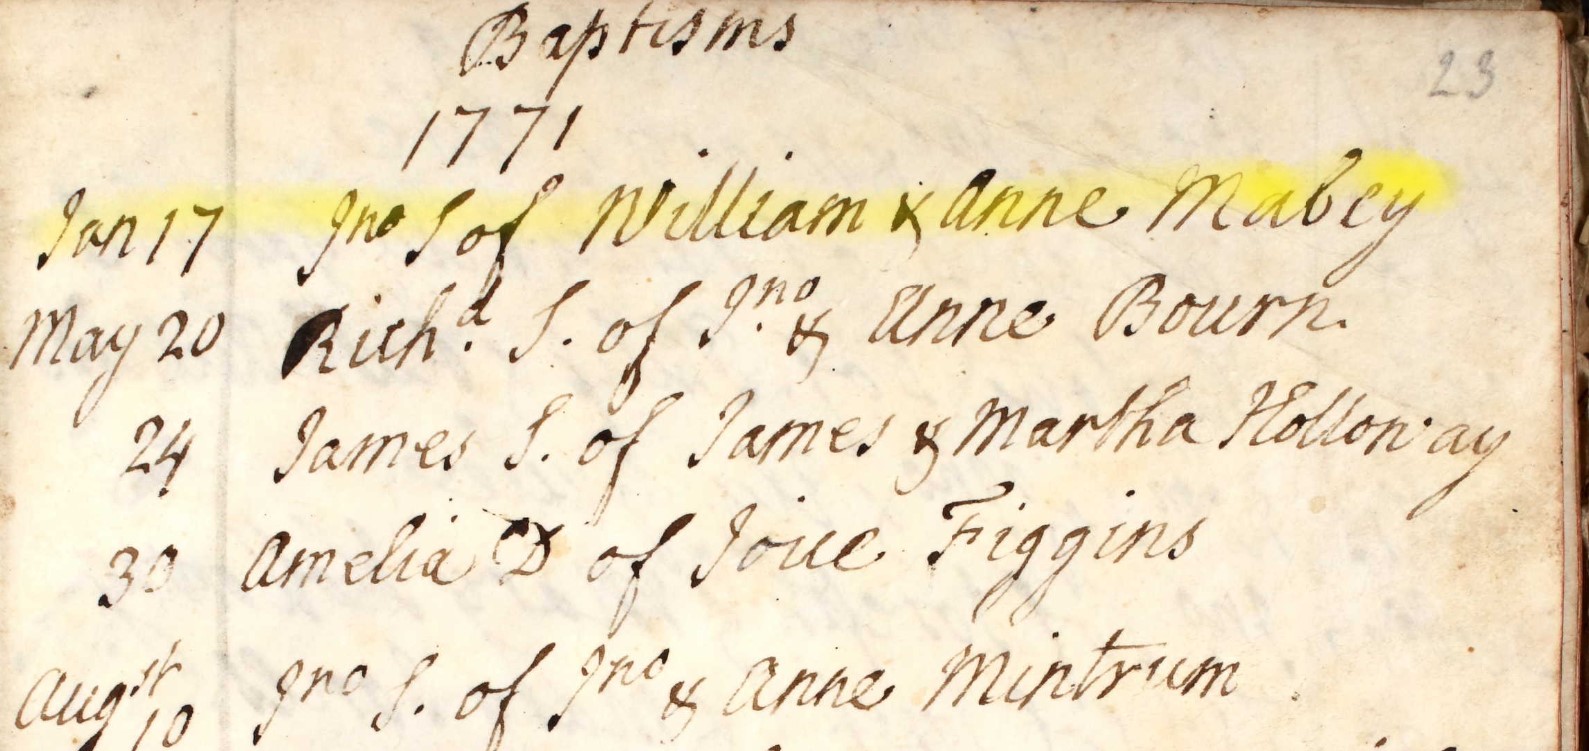 Baptisms
23
1771
Jan 17 Jno S of William & Anne Mabey
May 20 Richd. S. of Jno. & Anne Bourn.
24 James S. of James & Martha Holloway
30 Amelia D of Joice Figgins
Augst 10 Jno S. of Jno & Anne Mintrum